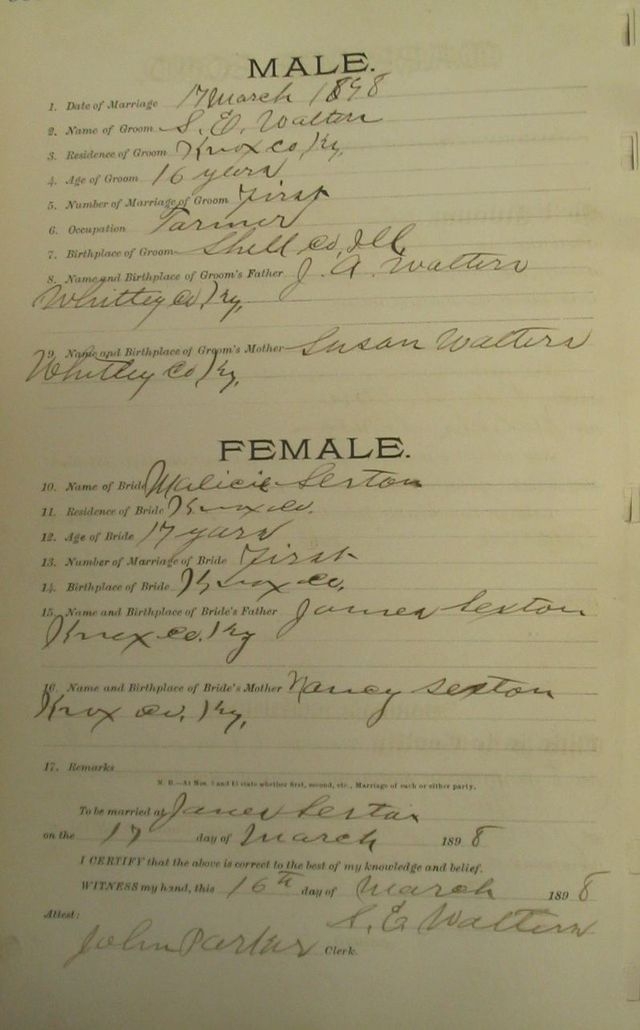 MALE.
1. Date of Marriage 17 March 1898
2. Name of Groom S. E. Walters
3. Residence of Groom Knox co, Ky,
4. Age of Groom 16 years
5. Number of Marriage of Groom First
6. Occupation Farmer
7. Birthplace of Groom Shell Co, Ill,
8. Name and Birthplace of Groom's Father J. A. Walters
Whitley Co, Ky,
9. Name and Birthplace of Groom's Mother Susan Walters
Whitley Co, Ky,
FEMALE.
10. Name of Bride Malicie Sexton
11. Residence of Bride Knox Co.
12. Age of Bride 17 years
13. Number of Marriage of Bride First
14. Birthplace of Bride Knox Co,
15. Name and Birthplace of Bride's Father James Sexton
Knox co. Ky
16. Name and Birthplace of Bride's Mother Nancy Sexton
Knox Co, Ky,
17. Remarks
N. B.—At Nos. 5 and 13 state whether first, second, etc., Marriage of each or either party.
To be married at James Sexton
on the 17 day of March 1898
I CERTIFY that the above is correct to the best of my knowledge and belief.
WITNESS my hand, this 16th day of March 1898
S. E. Walters
Attest:
John Parker Clerk.